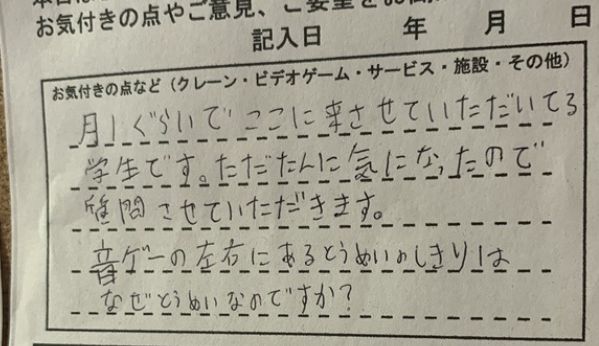 お気付きの点やご意見、ご要望をお
記入日 年 月 日
お気付きの点など（クレーン・ビデオゲーム・サービス・施設・その他）
月1ぐらいでここに来させていただいてる
学生です。ただたんに気になったので
質問させていただきます。
音ゲーの左右にあるとうめいのしきりは
なぜとうめいなのですか？